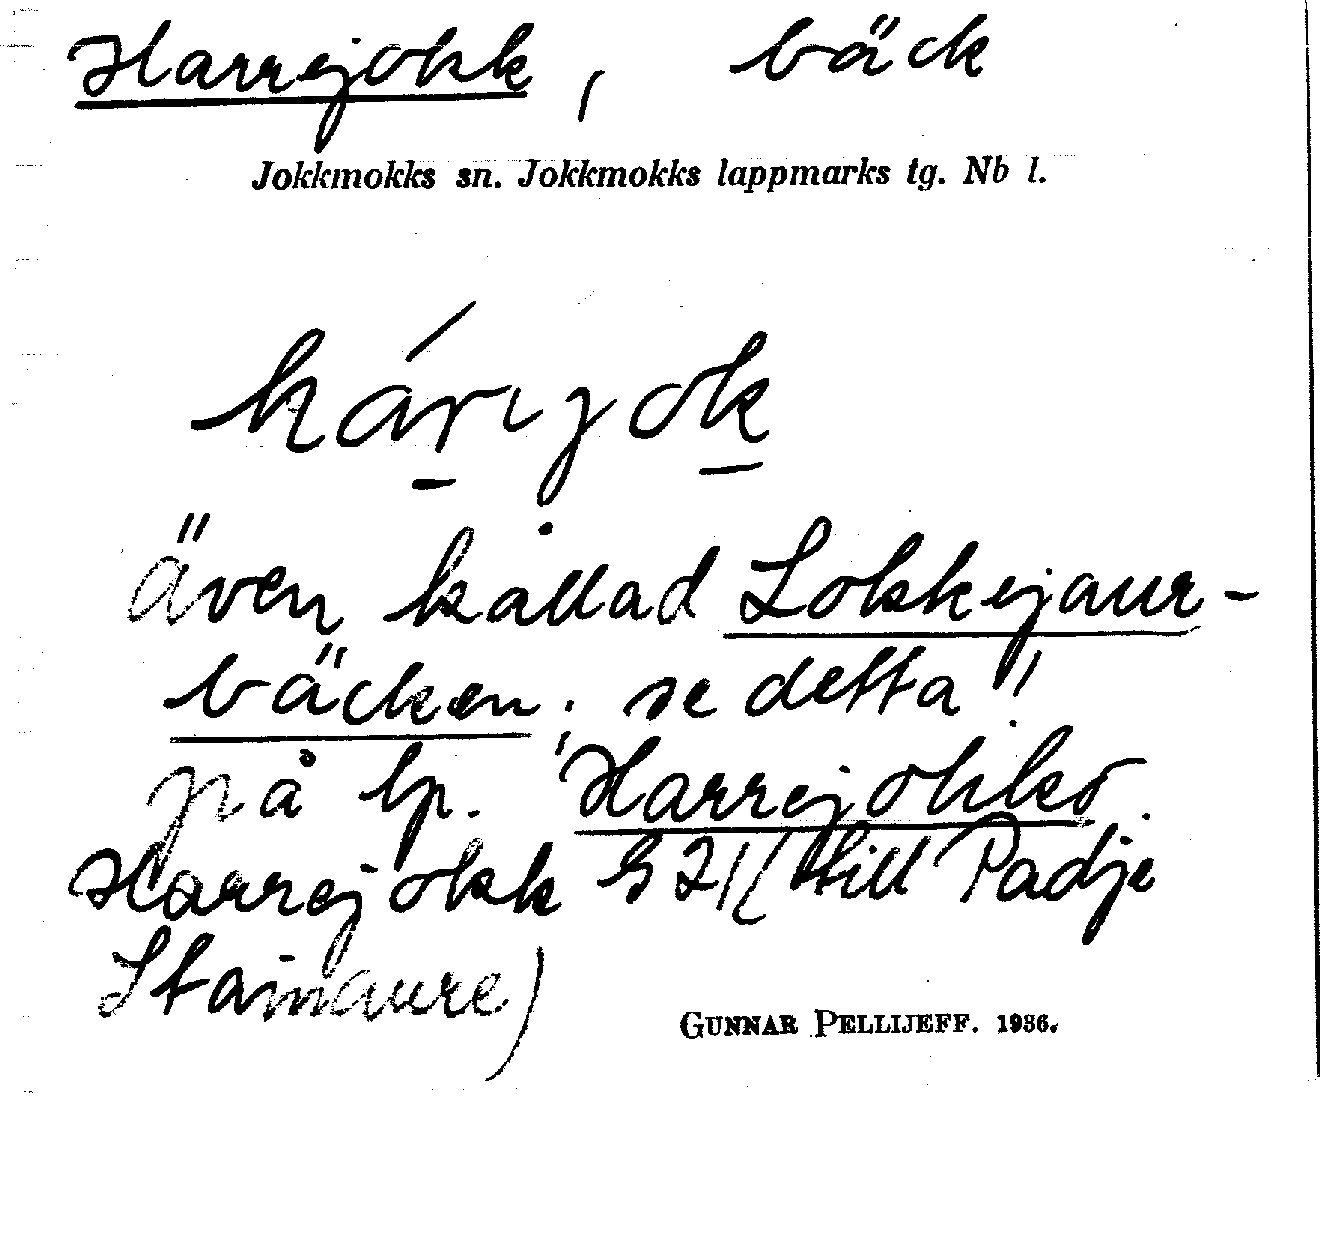 Harrejokk, bäck
Jokkmokks sn. Jokkmokks lappmarks tg. Nb l.
hárijok
även kallad Lokkejaur-
bäcken; se detta!
på lp. Harrejokkå.
Harrejokk till Padje
Stainaure)
GUNNAR PELLIJEFF. 1936.